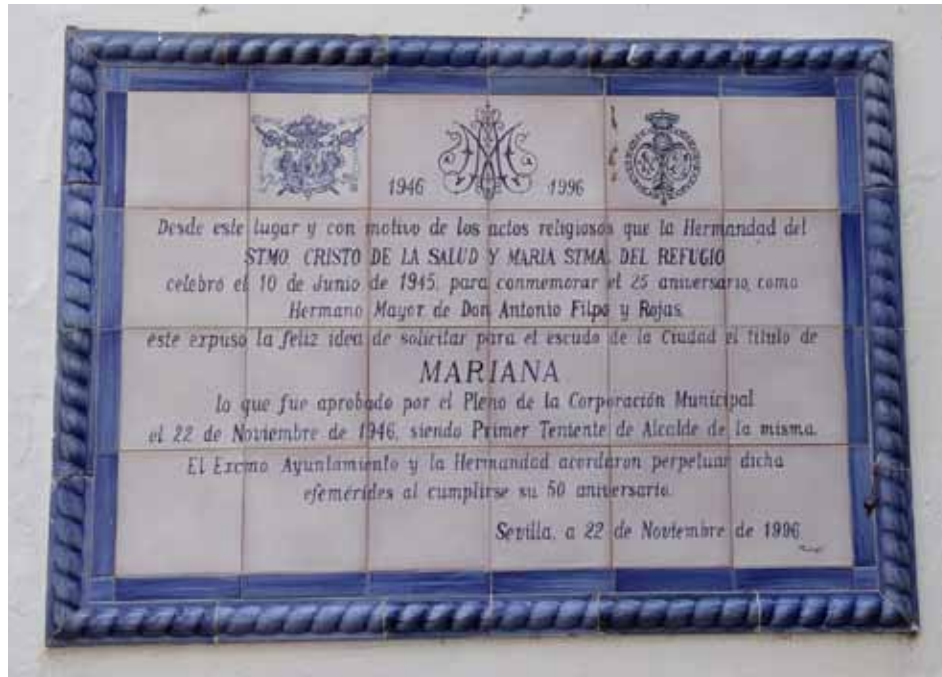 1946 1996
Desde este lugar y con motivo de los actos religiosos que la Hermandad del
STMO. CRISTO DE LA SALUD Y MARIA STMA. DEL REFUGIO
celebró el 10 de Junio de 1945, para conmemorar el 25 aniversario, como
Hermano Mayor de Don Antonio Filpo y Rojas,
éste expuso la feliz idea de solicitar para el escudo de la Ciudad el título de
MARIANA
lo que fue aprobado por el Pleno de la Corporación Municipal
el 22 de Noviembre de 1946, siendo Primer Teniente de Alcalde de la misma.
El Excmo Ayuntamiento y la Hermandad acordaron perpetuar dicha
efemérides al cumplirse su 50 aniversario.
Sevilla, a 22 de Noviembre de 1996